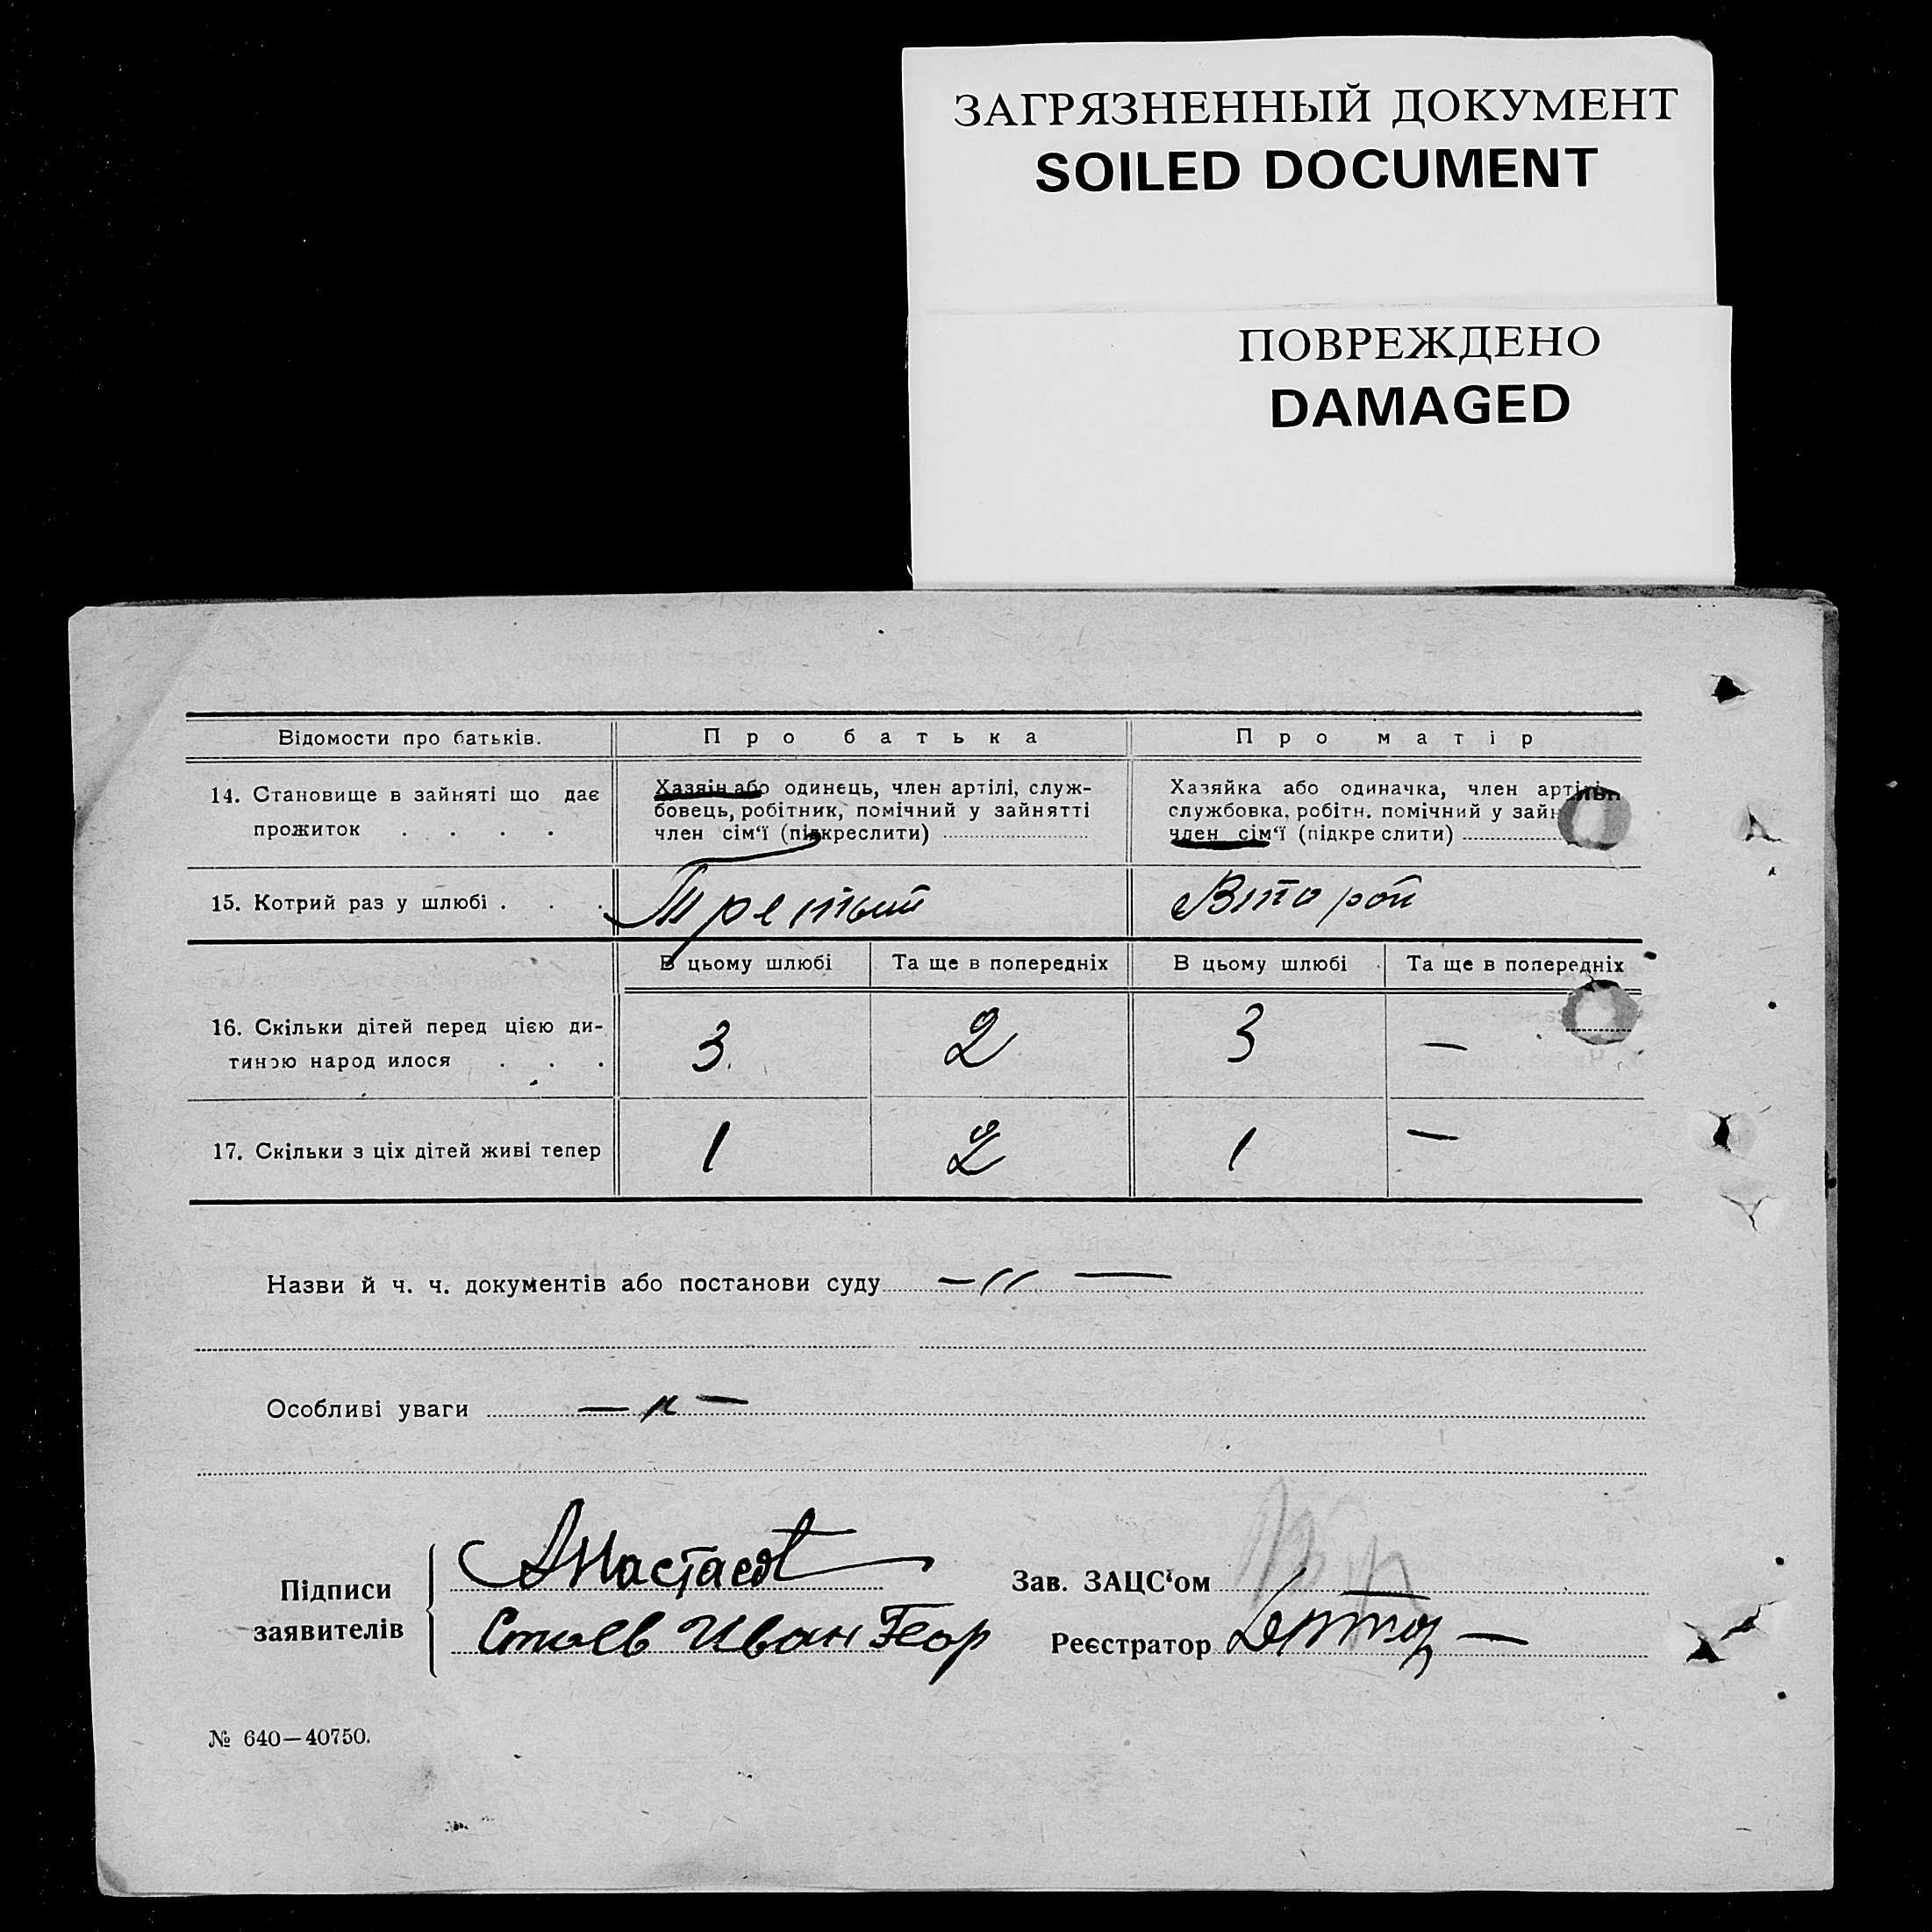 ЗАГРЯЗНЕННЫЙ ДОКУМЕНТ
SOILED DOCUMENT
ПОВРЕЖДЕНО
DAMAGED
Відомости про батьків. Про батька Про матір
14. Становище в зайняті що дає прожиток . . . .
Хазяін або одинець, член артілі, служ-
бовець, робітник, помічний у зайнятті
член сім‘ї (підкреслити)
Хазяйка або одиначка, член артілі,
службовка, робітн. помічний у зайн
член сім‘ї (підкреслити)
15. Котрий раз у шлюбі . . . Третьий Второй
В цьому шлюбі Та ще в попередніх В цьому шлюбі Та ще в попередніх
16. Скільки дітей перед цією ди-
тиною народилося . . . 3. 2 3 —
17. Скільки з ціх дітей живі тепер 1 2 1 —
Назви й ч. ч. документів або постанови суду —〃—
Особливі уваги —〃—
Підписи
заявителів
Иван Геор
Зав. ЗАЦС‘ом
Реєстратор
№ 640—40750.